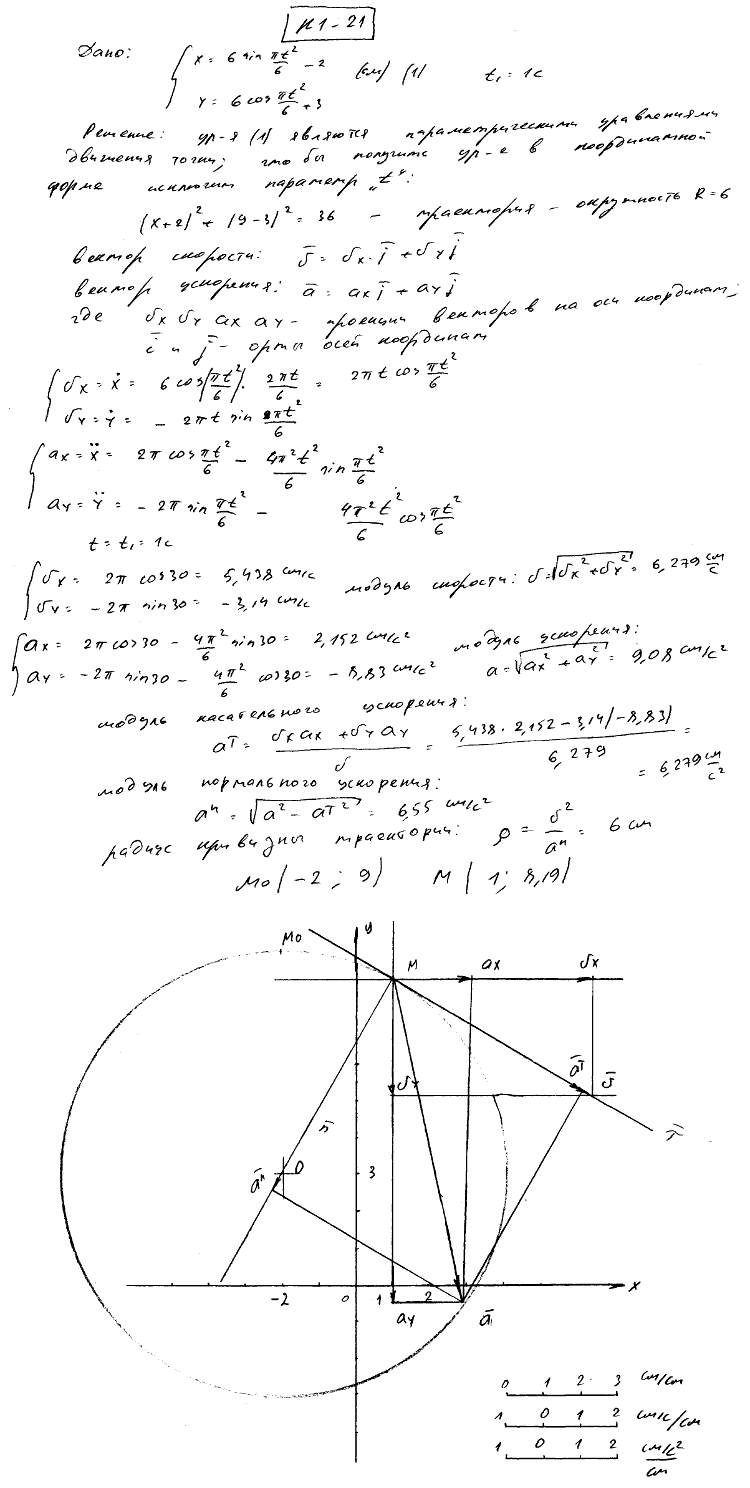 К1-21
Дано: { x = 6 sin πt²/6 - 2 (см) (1) t₁ = 1c
y = 6 cos πt²/6 + 3
Решение: ур-я (1) являются параметрическими уравнениями
движения точки; что бы получить ур-е в координатной
форме исключим параметр „t":
(x+2)² + (y-3)² = 36 - траектория - окружность R=6
вектор скорости: v̄ = vx·ī + vy j̄
вектор ускорения: ā = ax ī + ay j̄
где vx vy ax ay - проекции векторов на оси координат;
ī и j̄ - орты осей координат
{ vx = ẋ = 6 cos(πt²/6)· 2πt/6 = 2πt cos πt²/6
vy = ẏ = - 2πt sin πt²/6
{ ax = ẍ = 2π cos πt²/6 - 4π²t²/6 sin πt²/6
ay = ÿ = - 2π sin πt²/6 - 4π²t²/6 cos πt²/6
t = t₁ = 1c
{ vx = 2π cos30 = 5,438 см/с модуль скорости: v = √(vx² + vy²) = 6,279 см/с
vy = -2π sin30 = -3,14 см/с
{ ax = 2π cos30 - 4π²/6 sin30 = 2,152 см/с² модуль ускорения:
ay = -2π sin30 - 4π²/6 cos30 = -8,83 см/с² a = √(ax² + ay²) = 9,08 см/с²
модуль касательного ускорения:
aτ = (vx ax + vy ay)/v = (5,438 · 2,152 - 3,14(-8,83))/6,279 =
= 6,279 см/с²
модуль нормального ускорения:
aⁿ = √(a² - aτ²) = 6,55 см/с²
радиус кривизны траектории: ρ = v²/aⁿ = 6 см
M₀(-2; 9) M(1; 8,19)
M₀ y
M ax vx
vy āτ v̄
τ̄
n̄
āⁿ O 3
-2 0 1 2 x
ay ā
0 1 2 3 см/см
1 0 1 2 см/с/см
1 0 1 2 см/с²/см